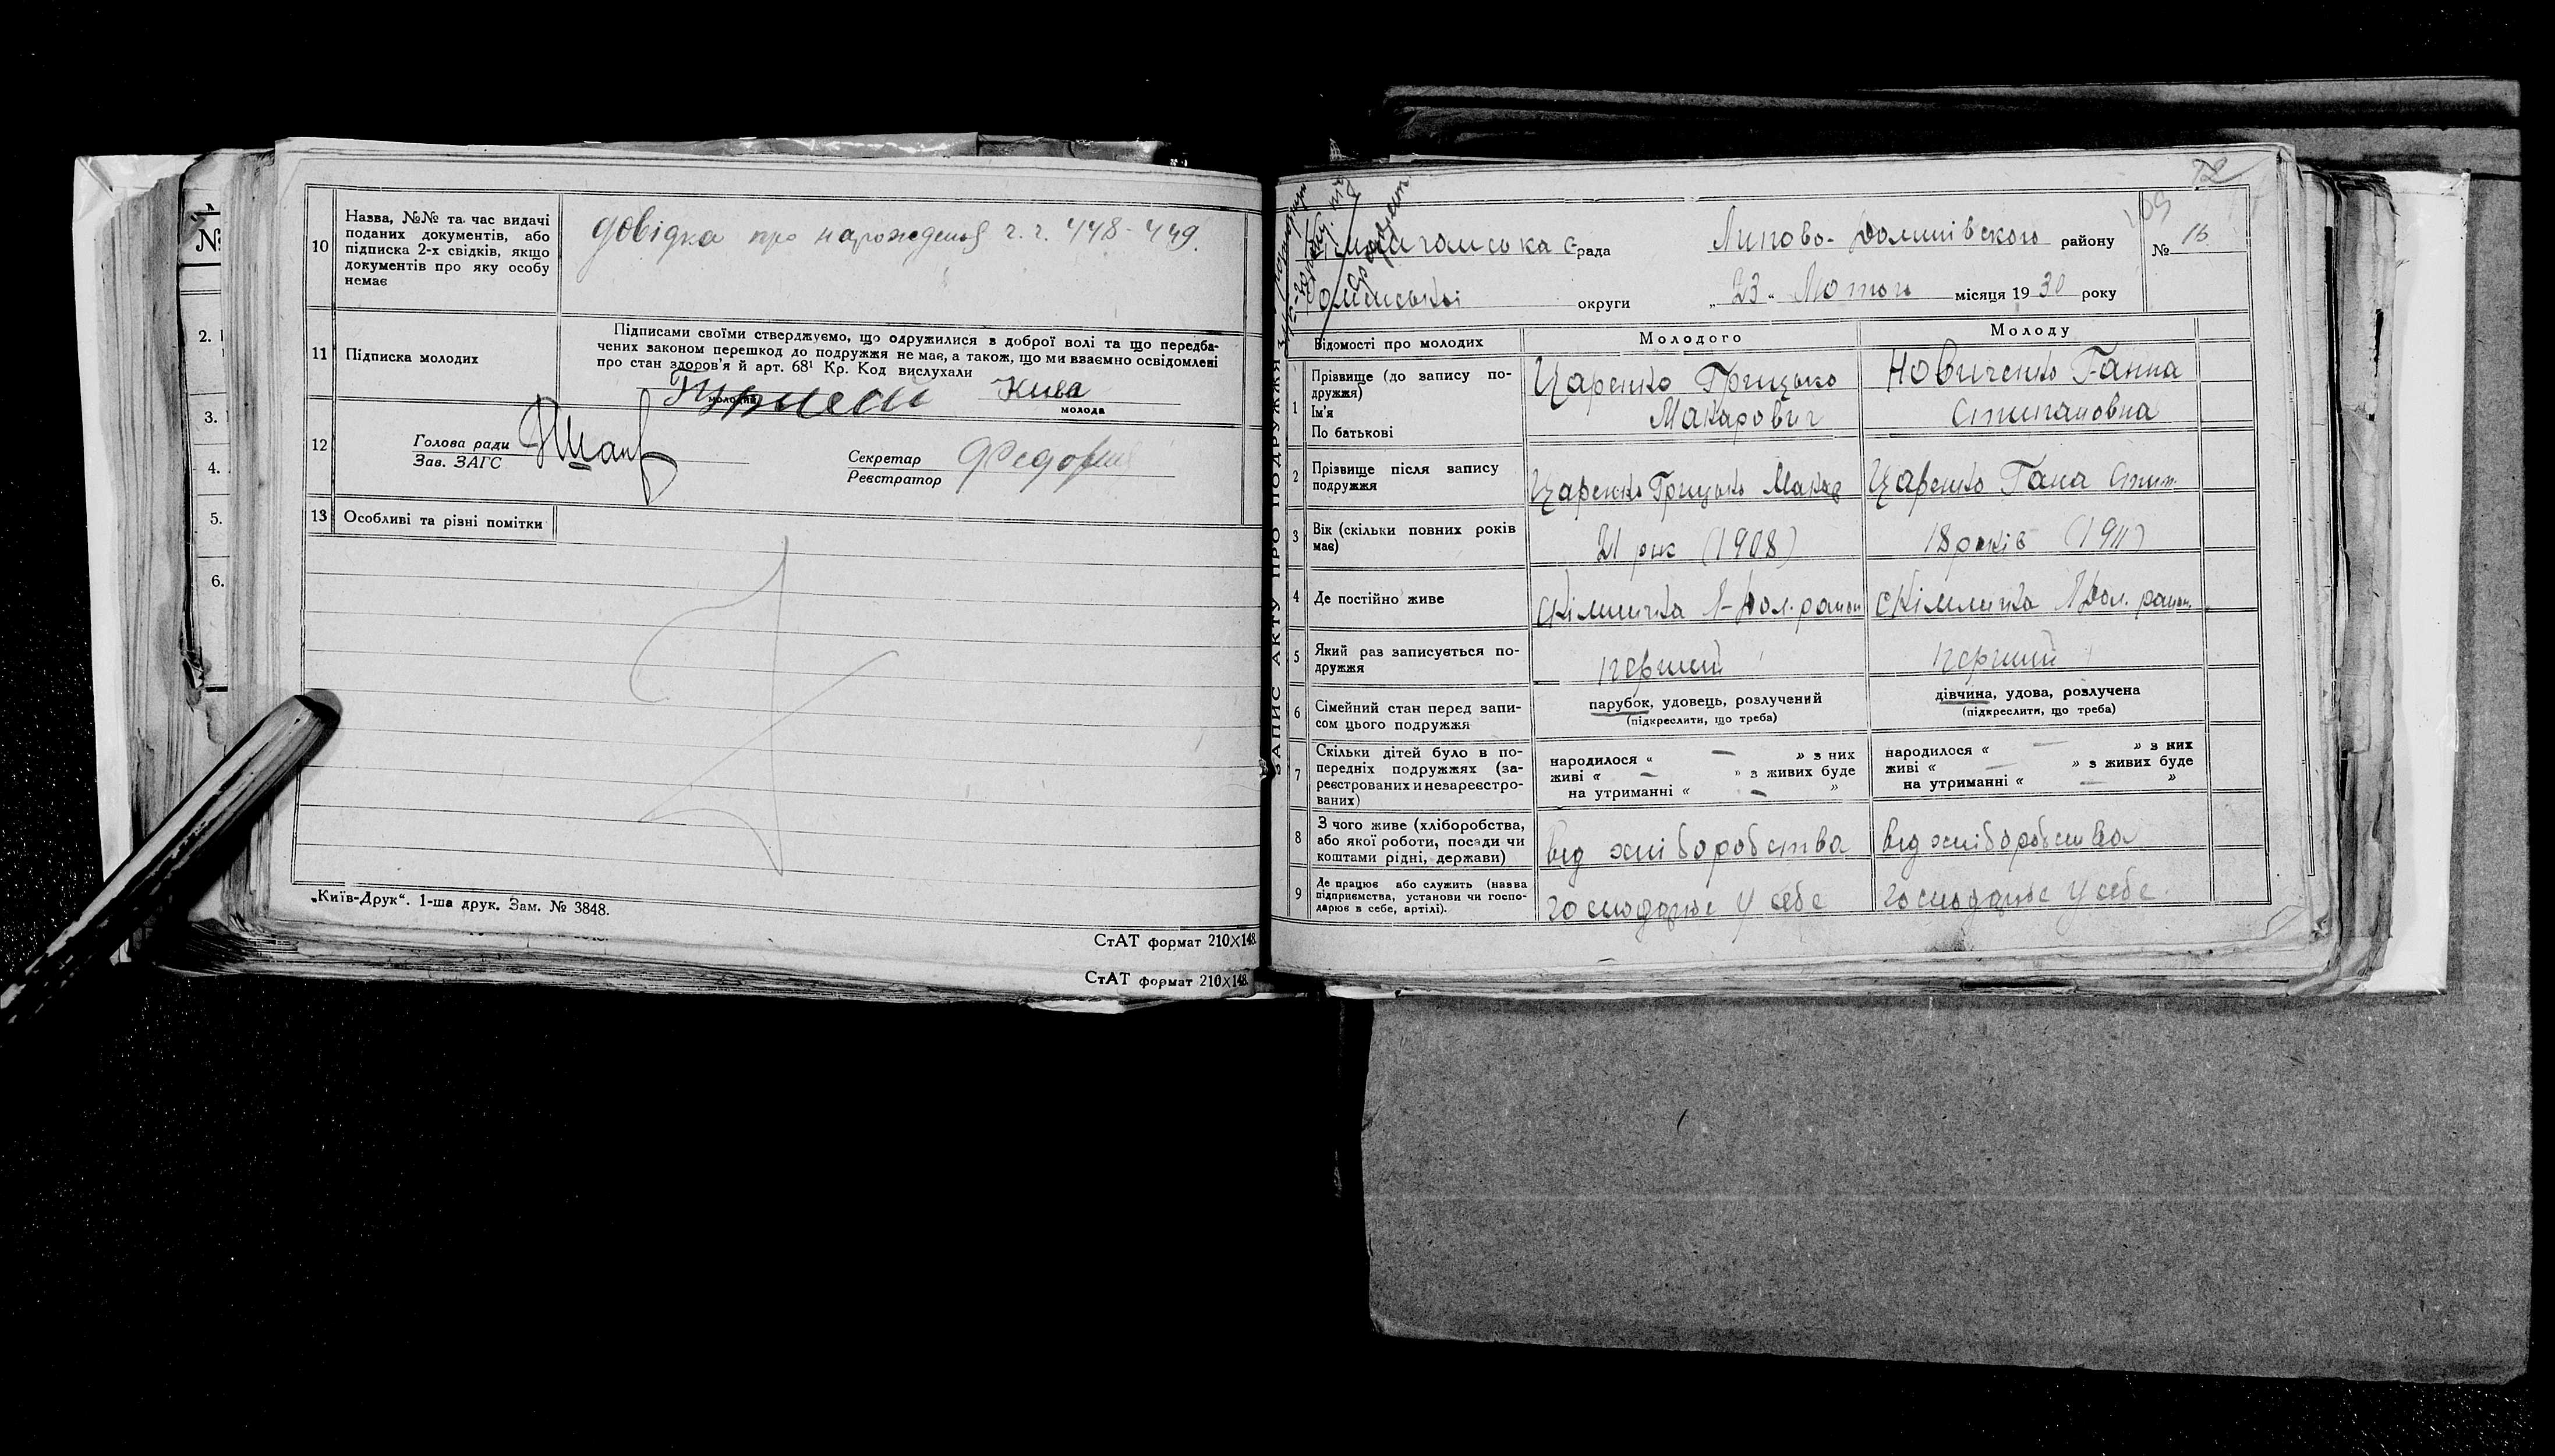 10 Назва, №№ та час видачі
поданих документів, або
підписка 2-х свідків, якщо
документів про яку особу
немає
довідка про народження ч.ч. 448-449.
11 Підписка молодих
Підписами своїми стверджуємо, що одружилися з доброї волі та що передба-
чених законом перешкод до подружжя не має, а також, що ми взаємно освідомлені
про стан здоров'я й арт. 68¹ Кр. Код вислухали
молодий
молода
12 Голова ради
Зав. ЗАГС
Секретар
Реєстратор
13 Особливі та різні помітки
„Київ-Друк“. 1-ша друк. Зам. № 3848.
СтАТ формат 210×148.
СтАТ формат 210×148.
№
2.
3.
4.
5.
6.
ЗАПИС АКТУ ПРО ПОДРУЖЖЯ
72
109
рада Липово-Долинівского району № 16
округи „23“ Лютого місяця 1930 року
Відомості про молодих Молодого Молоду
1 Прізвище (до запису по-
дружжя)
Ім'я
По батькові
Царенко Грицько
Макарович
Новиченко Ганна
Степановна
2 Прізвище після запису
подружжя
Царенко Грицько Макар
Царенко Гана Степ.
3 Вік (скільки повних років
має)
21 рік (1908)
18 років (1911)
4 Де постійно живе
5 Який раз записується по-
дружжя
перший
перший
6 Сімейний стан перед запи-
сом цього подружжя
парубок, удовець, розлучений
(підкреслити, що треба)
дівчина, удова, розлучена
(підкреслити, що треба)
7 Скільки дітей було в по-
передніх подружжях (за-
реєстрованих и незареєстро-
ваних)
народилося « — » з них
живі « — » з живих буде
на утриманні « — »
народилося « — » з них
живі « — » з живих буде
на утриманні « — »
8 З чого живе (хліборобства,
або якої роботи, посади чи
коштами рідні, держави)
від хліборобства
від хліборобства
9 Де працює або служить (назва
підприємства, установи чи госпо-
дарює в себе, артілі).
господарює у себе
господарює у себе.